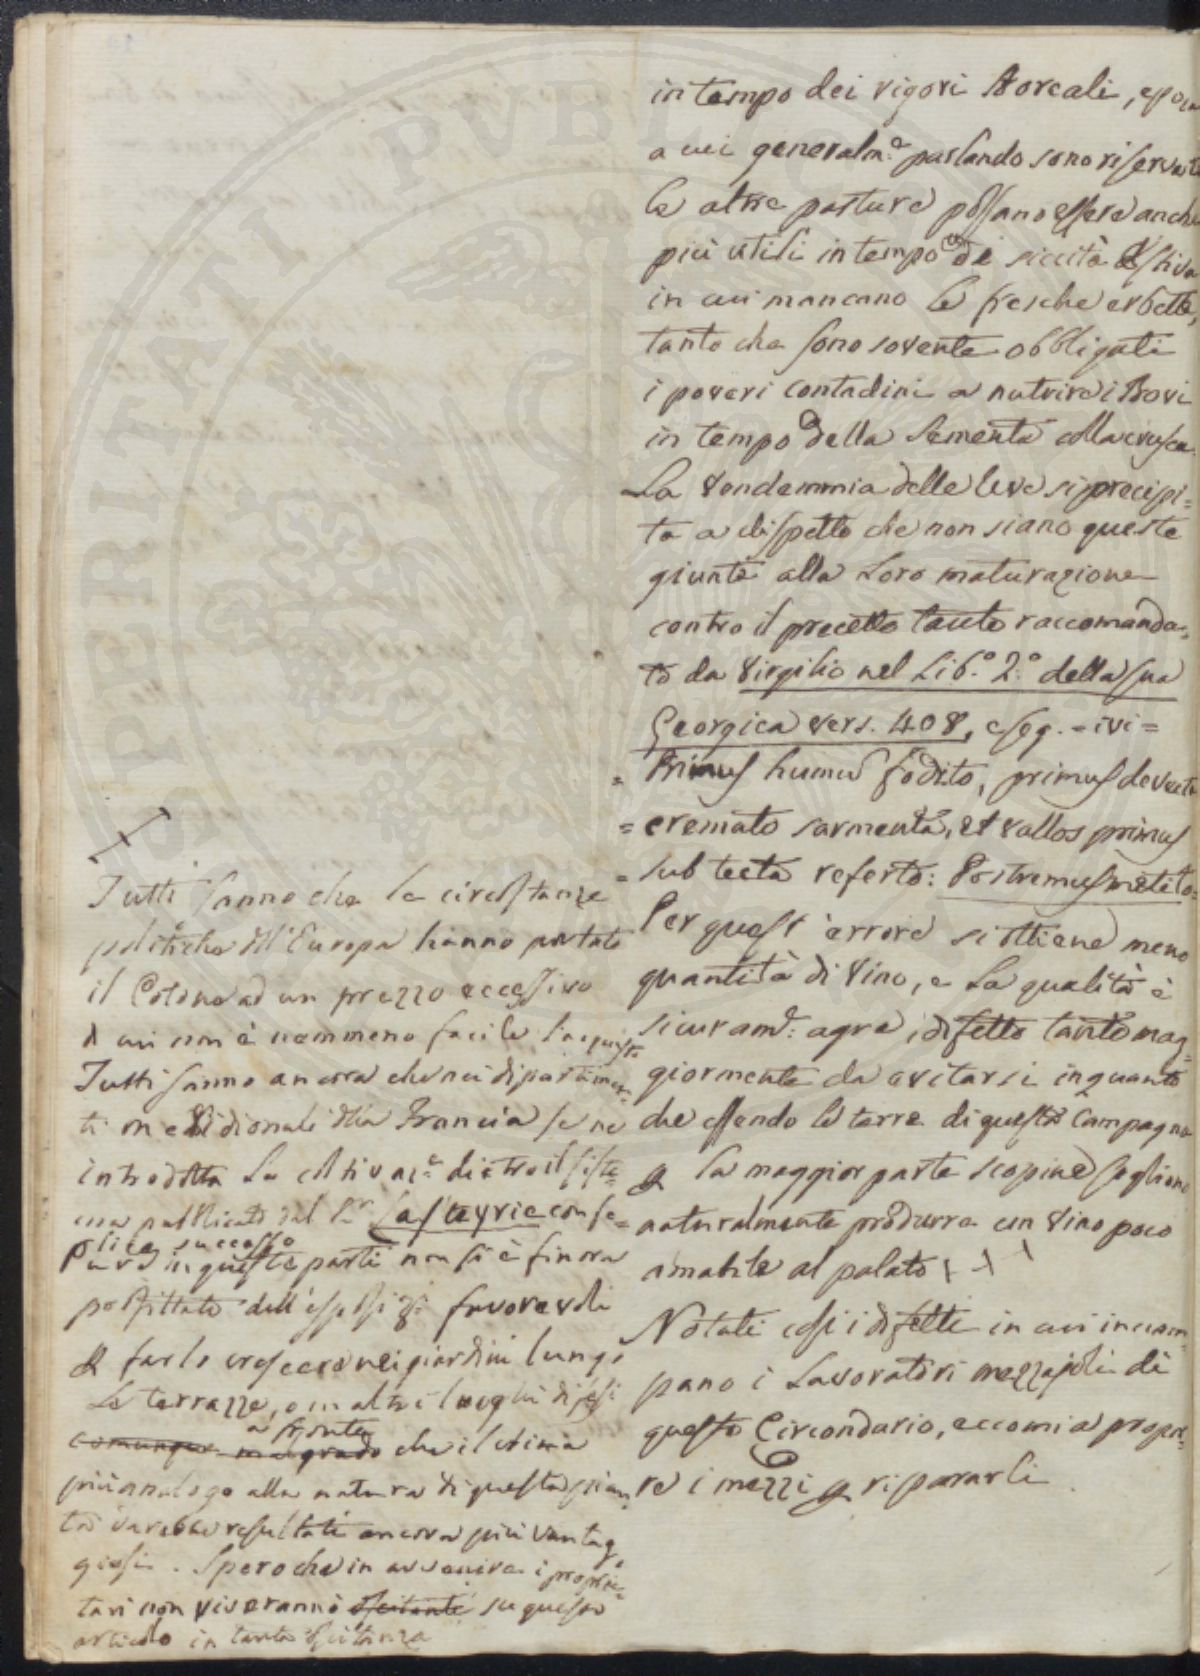 in tempo dei rigori Boreali, epoca
a cui generalm.e parlando sono riservate
le altre pasture possano essere anche
più utili in tempo di siccità Estiva
in cui mancano le fresche erbette,
tanto che sono sovente obbligati
i poveri contadini a nutrire i Bovi
in tempo della Sementa colla crusca.
La Vendemmia delle Uve si precipi=
ta a dispetto che non siano queste
giunte alla Loro maturazione
contro il precetto tanto raccomanda=
to da Virgilio nel Lib.o 2.o della sua
Georgica vers. 408, e seg. - ivi =
= Primus humum fodito, primus devecta
= cremato sarmenta, et vallos primus
= sub tecta referto: Postremus metito=
Per quest' errore si ottiene meno
quantità di Vino, e La qualità è
sicuram.e agra, difetto tanto mag=
giormente da evitarsi inquanto
che essendo le terre di questa Campagna
p la maggior parte scopine sogliono
naturalmente produrre un Vino poco
amabile al palato
Notati così i difetti in cui inciam=
pano i Lavoratori mezzajoli di
questo Circondario, eccomi a propor=
re i mezzi p ripararli
Tutti sanno che le circostanze
politiche dell'Europa hanno portato
il Cotone ad un prezzo eccessivo
di cui non è nemmeno facile l'acquisto
Tutti sanno ancora che nei dipartimen=
ti meridionali della Francia se ne
introdotta La coltivaz.e dietro il siste=
ma pubblicato dal S.r Lasteyrie con fe=
lice successo
Pure in queste parti non si è finora
profittato dell' esposiz.i favorevoli
p farlo crescere nei giardini lungo
Le terrazze, o in altri luoghi difesi
a fronte
comunque malgrado che il clima
più analogo alla natura di questa pian
ta darebbe resultati ancora più vantag
giosi. Spero che in avvenire i proprie=
tari non viveranno oscitanti su questo
articolo in tanta oscitanza